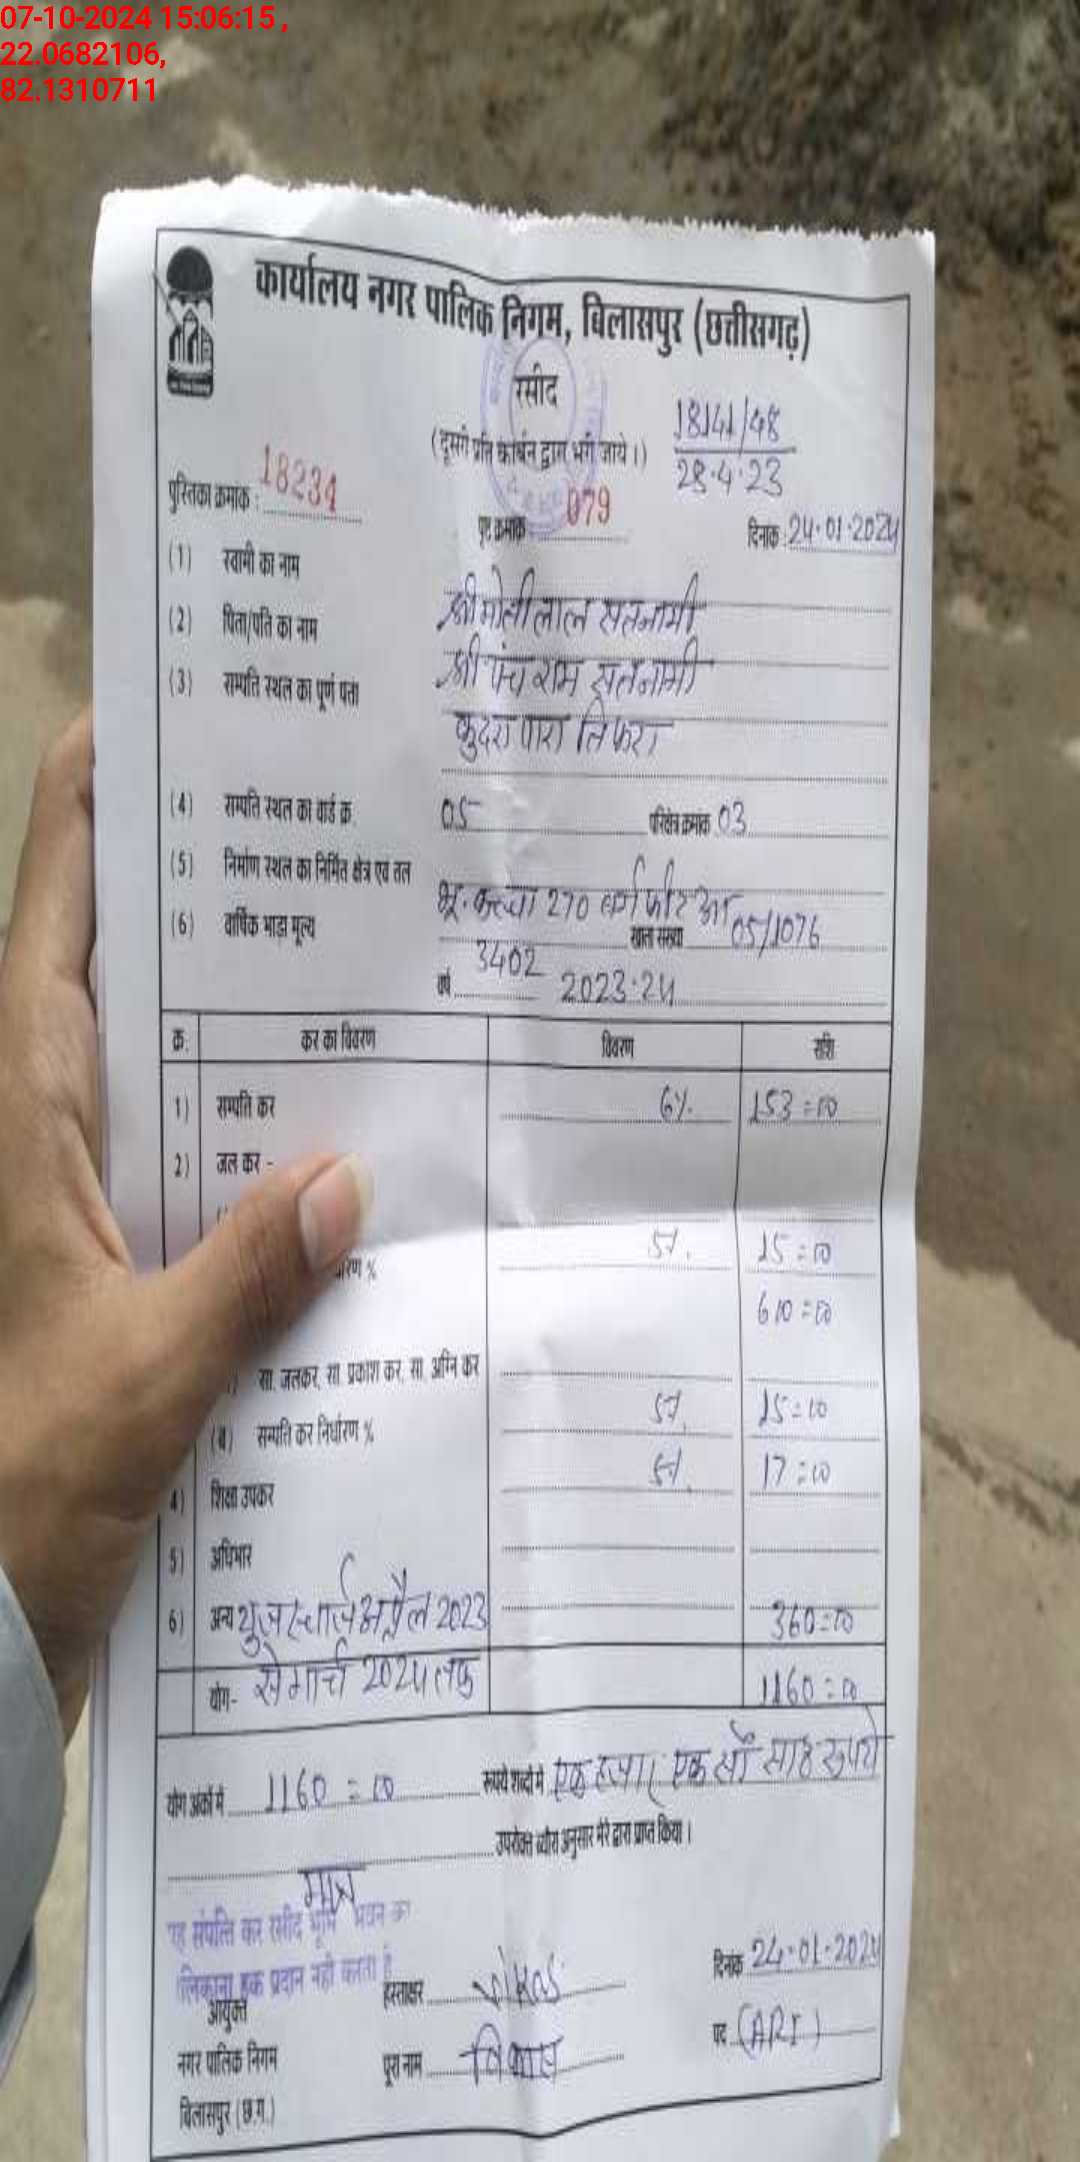 07-10-2024 15:06:15 ,
22.0682106,
82.1310711
कार्यालय नगर पालिक निगम, बिलासपुर (छत्तीसगढ़)
रसीद
(दूसरी प्रति कार्बन द्वारा भरी जाये।)
18141/48
28.4.23
पुस्तिका क्रमांक : 18234
पृष्ट क्रमांक 079
दिनांक : 24.01.2024
(1) स्वामी का नाम श्री मोतीलाल सतनामी
(2) पिता/पति का नाम श्री पंच राम सतनामी
(3) सम्पति स्थल का पूर्ण पता कुदरा पारा तिफरा
(4) सम्पति स्थल का वार्ड क्र. 05 परिक्षेत्र क्रमांक 03
(5) निर्माण स्थल का निर्मित क्षेत्र एवं तल भू. कच्चा 270 वर्ग फीट आ
(6) वार्षिक भाड़ा मूल्य 3402 खाता संख्या 05/1076
वर्ष 2023-24
क्र. कर का विवरण विवरण राशि
1) सम्पति कर 6%. 153=00
2) जल कर -
धारण % 5%. 15=00
600=00
सा. जलकर, सा. प्रकाश कर, सा. अग्नि कर
(ब) सम्पति कर निर्धारण % 5%. 15=00
4) शिक्षा उपकर 5%. 17=00
5) अधिभार
6) अन्य यूजर चार्ज अप्रैल 2023 360=00
योग- से मार्च 2024 तक 1160=00
योग अंकों में 1160=00 रूपये शब्दों में एक हजार एक सौ साठ रूपये
उपरोक्त ब्यौरा अनुसार मेरे द्वारा प्राप्त किया।
मात्र
यह संपत्ति कर रसीद भूमि भवन का
लिकाना हक प्रदान नहीं करता है
दिनांक 24-01-2024
आयुक्त
हस्ताक्षर
पद (ARI)
नगर पालिक निगम
पूरा नाम विकास
बिलासपुर (छ.ग.)